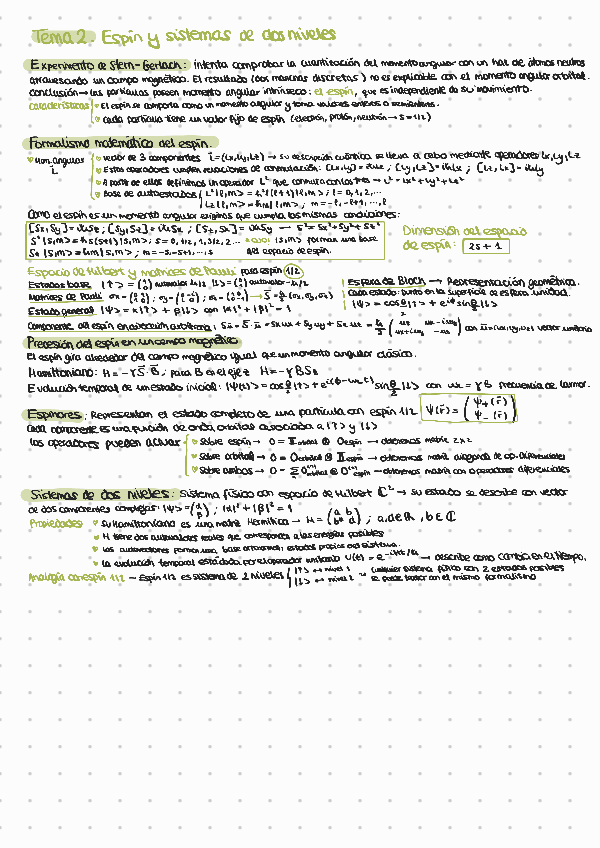 Tema 2. Espín y sistemas de dos niveles
Experimento de Stern-Gerlach: intenta comprobar la cuantización del momento angular con un haz de átomos neutros
atravesando un campo magnético. El resultado (dos manchas discretas) no es explicable con el momento angular orbital.
Conclusión → las partículas poseen momento angular intrínseco: el espín, que es independiente de su movimiento.
Características • El espín se comporta como un momento angular y toma valores enteros o semienteros.
• Cada partícula tiene un valor fijo de espín (electrón, protón, neutrón → s = 1/2)
Formalismo matemático del espín.
• Mom. angular L
• Vector de 3 componentes L = (Lx, Ly, Lz) → su descripción cuántica se lleva a cabo mediante operadores Lx, Ly, Lz
• Estos operadores cumplen relaciones de conmutación: [Lx, Ly] = iħLz ; [Ly, Lz] = iħLx ; [Lz, Lx] = iħLy
• A partir de ellos definimos un operador L² que conmuta con los tres → L² = Lx² + Ly² + Lz²
• Base de autoestados L²|l,m> = ħ²l(l+1)|l,m> ; l = 0, 1, 2, ...
Lz|l,m> = ħm|l,m> ; m = -l, -l+1, ..., l
Como el espín es un momento angular exigimos que cumpla las mismas condiciones:
[Sx, Sy] = iħSz ; [Sy, Sz] = iħSx ; [Sz, Sx] = iħSy → S² = Sx² + Sy² + Sz²
S²|s,m> = ħ²s(s+1)|s,m> ; s = 0, 1/2, 1, 3/2, 2... |s,m> forman una base
Sz|s,m> = ħm|s,m> ; m = -s, -s+1, ..., s del espacio de espín.
Dimensión del espacio
de espín: 2s + 1
Espacio de Hilbert y matrices de Pauli para espín 1/2
Estados base |↑> = (1 0) autovalor ħ/2 |↓> = (0 1) autovalor -ħ/2
Matrices de Pauli σx = (0 1 1 0) ; σy = (0 -i i 0) ; σz = (1 0 0 -1) → S = ħ/2 (σx, σy, σz)
Estado general |ψ> = α|↑> + β|↓> con |α|² + |β|² = 1
Esfera de Bloch → Representación geométrica.
Cada estado: punto en la superficie de esfera unidad.
|ψ> = cos θ/2 |↑> + e^iφ sin θ/2 |↓>
Componente del espín en dirección arbitraria: Su = S · u = Sx ux + Sy uy + Sz uz = ħ/2 (uz ux-iuy ux+iuy -uz) con u = (ux, uy, uz) vector unitario
Precesión del espín en un campo magnético
El espín gira alrededor del campo magnético igual que un momento angular clásico.
Hamiltoniano: H = -γ S · B ; para B en el eje z H = -γ B Sz
Evolución temporal de un estado inicial: |ψ(t)> = cos θ/2 |↑> + e^i(φ-ωLt) sin θ/2 |↓> con ωL = γB frecuencia de Larmor.
Espinores: Representan el estado completo de una partícula con espín 1/2 ψ(r) = (ψ+(r) ψ-(r))
Cada componente es una función de onda orbital asociada a |↑> y |↓>
Los operadores pueden actuar • Sobre espín → O = 𝕀orbital ⊗ Oespín → obtenemos matriz 2x2
• Sobre orbital → O = Oorbital ⊗ 𝕀espín → obtenemos matriz diagonal de op. diferenciales
• Sobre ambos → O = Σ O(n)orbital ⊗ O(n)espín → obtenemos matriz con operadores diferenciales
Sistemas de dos niveles: Sistema físico con espacio de Hilbert ℂ² → su estado se describe con vector
de dos componentes complejas: |ψ> = (α β) ; |α|² + |β|² = 1
Propiedades • Su Hamiltoniano es una matriz hermítica → H = (a b b* d) ; a, d ∈ ℝ, b ∈ ℂ
• H tiene dos autovalores reales que corresponden a las energías posibles
• Los autovectores forman una base ortonormal: estados propios del sistema.
• La evolución temporal está dada por el operador unitario U(t) = e^-iHt/ħ → describe cómo cambia en el tiempo.
Analogía con espín 1/2 → Espín 1/2 es sistema de 2 niveles |↑> ↔ nivel 1 → cualquier sistema físico con 2 estados posibles
|↓> ↔ nivel 2 se puede tratar con el mismo formalismo